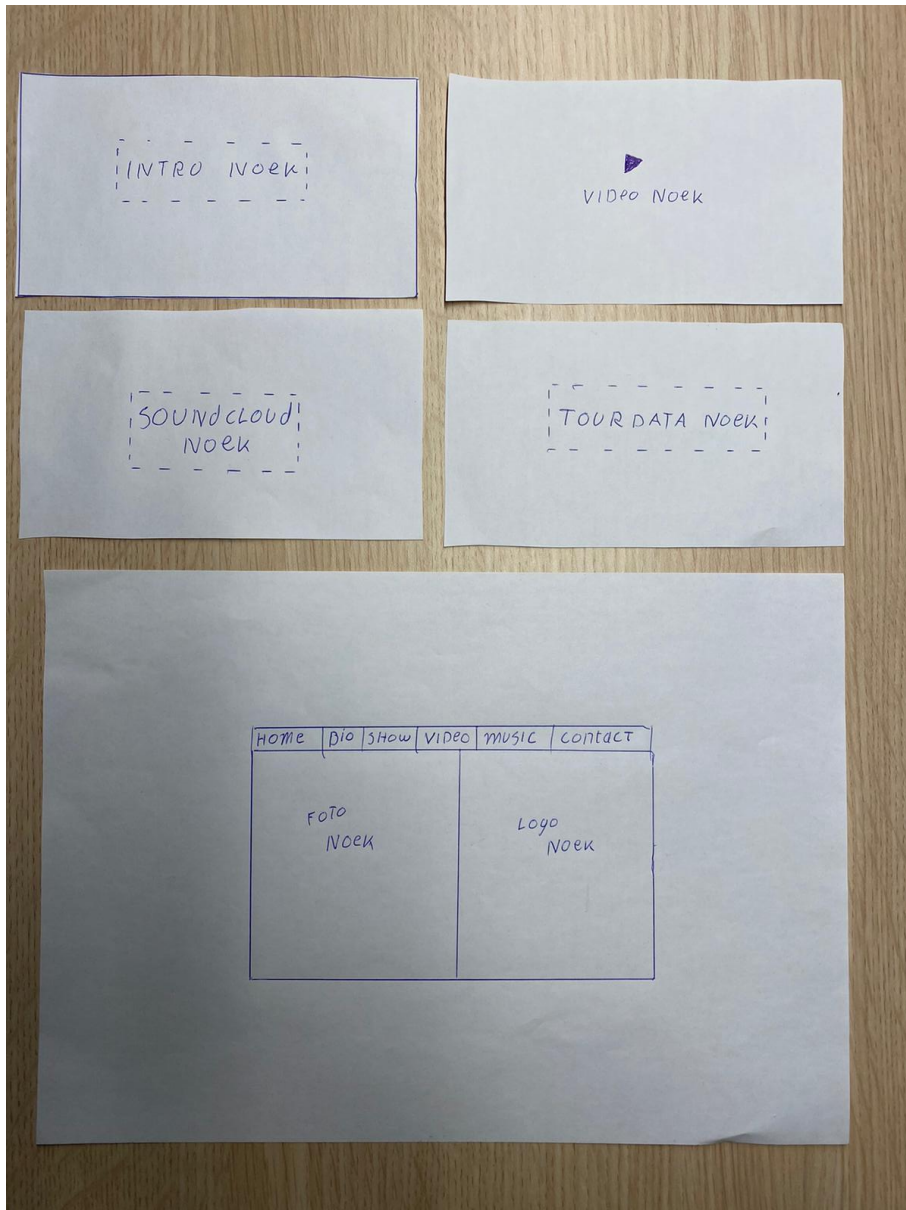 INTRO NOEK
VIDEO NOEK
SOUNDCLOUD
NOEK
TOURDATA NOEK
HOME BIO SHOW VIDEO MUSIC CONTACT
FOTO
NOEK
LOGO
NOEK